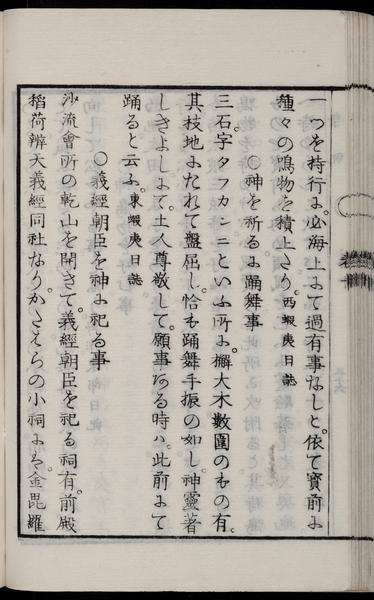 一つを持行よ。必海上よて過有事なしと。依て寳前よ
種々の鳴物を積上たり。西蝦夷日誌
〇神を祈るよ踊舞事
三石字タフカンニといふ所よ。檞大木數圍のもの有。
其枝地よたれて盤屈し。恰も踊舞手振の如し。神靈著
しきよしよて。土人尊敬して願事ある時ハ。此前よて
踊ると云ふ。東蝦夷日誌
〇義經朝臣を神よ祀る事
沙流會所の乾山を開きて。義經朝臣を祀る祠有。前殿
稻荷辨天義經同社なり。かたハらの小祠よは。金毘羅